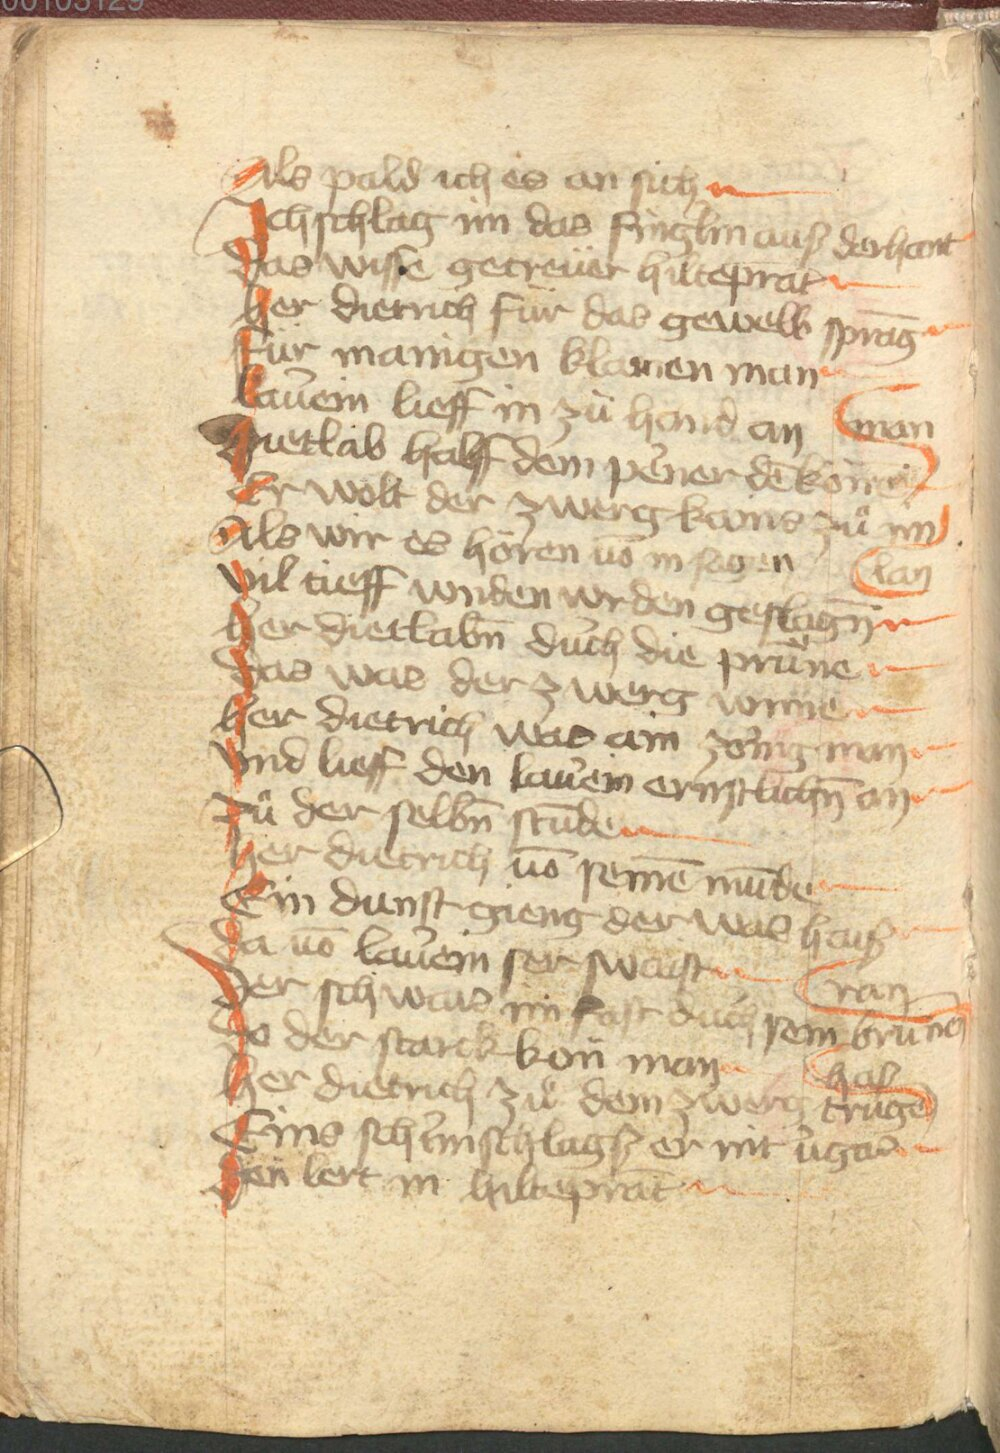 00103129
Als pald ich es an sich
Ich schlag im das finglin auß der hant
Das wisse getreüer hilteprāt
her dietrich für das gewelb sprāg
Für manigen klainen man
lauein lieff in zů hand an
man
Dietlab halff dem pner dē
Er wolt der zwerg kains zů im
lan
Als wir es hören vō in sagen
vil tieff wnden wrden geslagn̄
her dietlabn̄ duch die prūne
Das was der zwerg wūne
her dietrich was ain zonig man
vnd lieff den lauein ernstlichn̄ an
Zů der selbn̄ stūde
her dietrich vō seinē mūde
Ein dunst gieng der was haiß
Da vō lauein ser swaist
ran
Der schwais im fast duch sein brūne
Do der starck kön man
haß
her dietrich zů dem zwerg trugē
Eins schlagß er nit
Den lert in hilteprāt